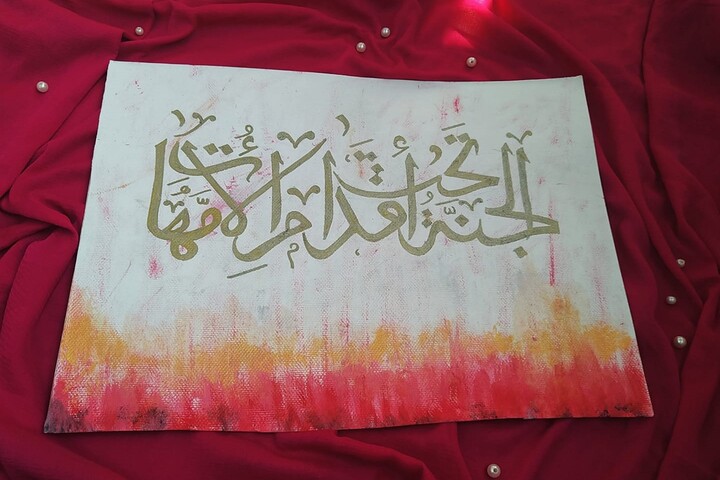 الجنَّةُ تَحتَ أقدام الأُمَّهَات